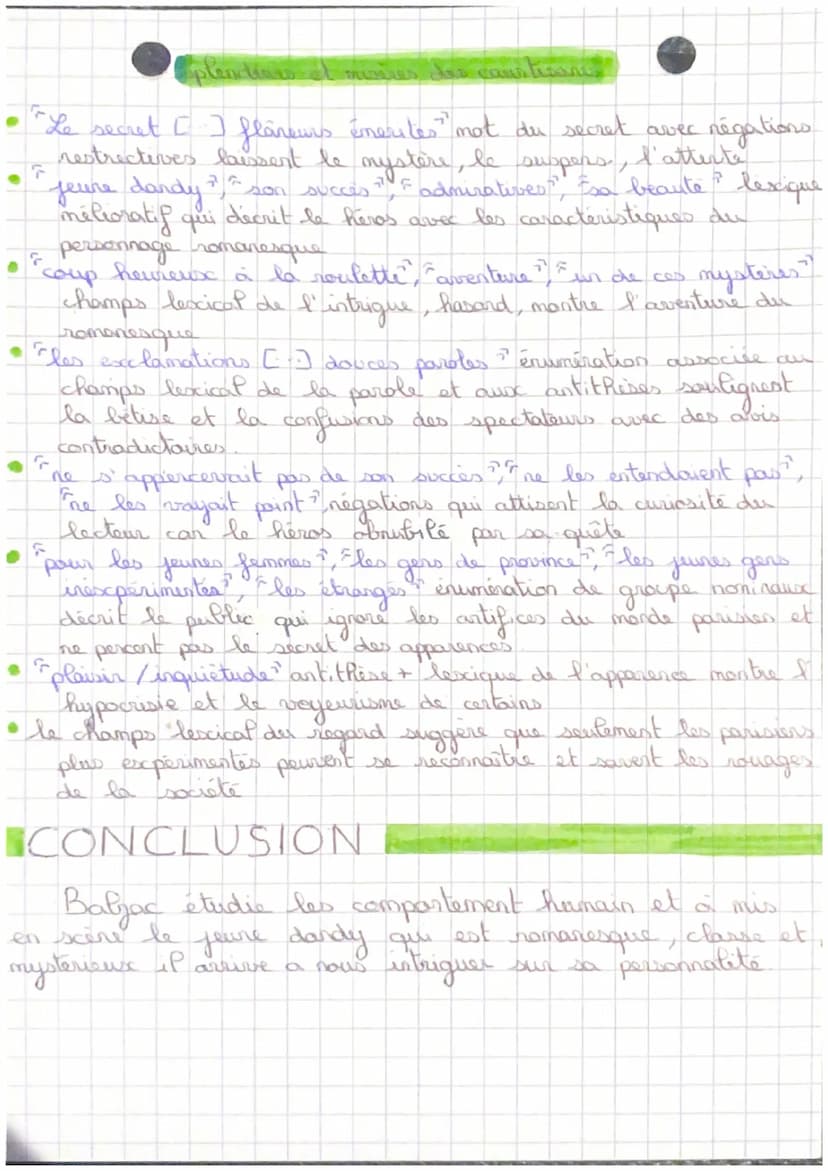 Splendeurs et misères des courtisanes
• "Le secret [...] flâneurs émérites" mot du secret avec négations
restrictives laissent le mystère, le suspens, l'attente
• "jeune dandy", "son succès", "admiratives", "sa beauté" lexique
mélioratif qui décrit le héros avec les caractéristiques du
personnage romanesque
• "coup heureux à la roulette", "aventure", "un de ces mystères"
champs lexical de l'intrigue, hasard, montre l'aventure du
romanesque
• "les exclamations [...] douces paroles" énumération associée au
champs lexical de la parole et aux antithèses soulignent
la bêtise et la confusions des spectateurs avec des avis
contradictoires.
• "ne s'appercevait pas de son succès", "ne les entendaient pas",
"ne les voyait point", négations qui attisent la curiosité du
lecteur car le héros obnubilé par sa quête
• "pour les jeunes femmes", "les gens de province", "les jeunes gens
inexpérimentés", "les étrangés" énumération de groupe nominaux
décrit le public qui ignore les artifices du monde parisien et
ne percent pas le secret des apparences
• "plaisir / inquiétude" antithèse + lexique de l'apparence montre l'
hypocrisie et le voyeurisme de certains
• le champs lexical du regard suggère que seulement les parisiens
plus expérimentés peuvent se reconnaître et savent les rouages
de la société
CONCLUSION
Balzac étudie les comportement humain et à mis
en scène le jeune dandy qui est romanesque, classe et
mystérieux il arrive a nous intriguer sur sa personnalité